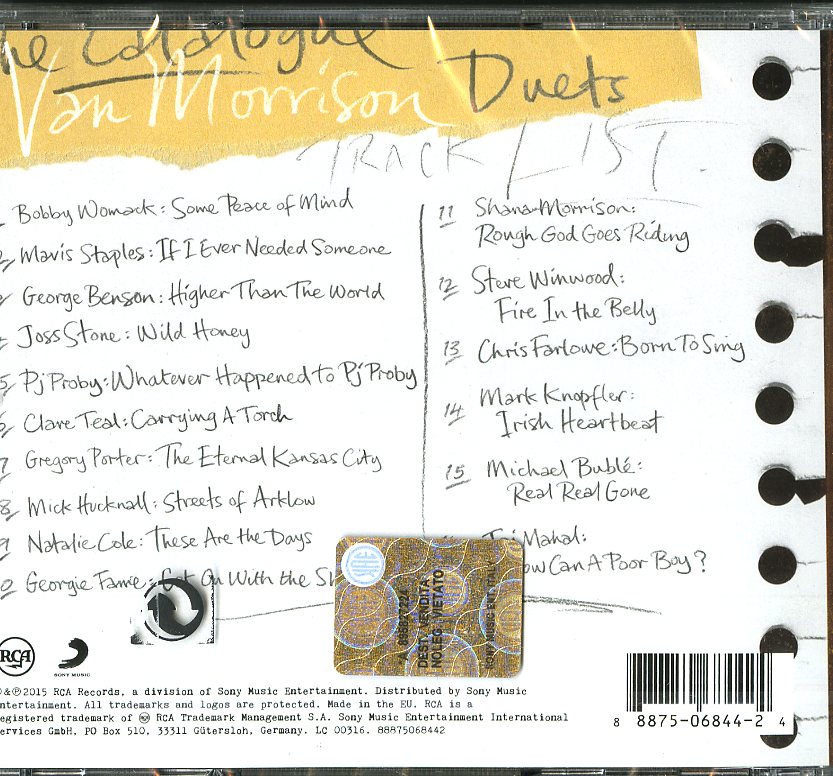 he Catalogue
Van Morrison Duets
TRACK LIST.
Bobby Womack: Some Peace of Mind
Mavis Staples: If I Ever Needed Someone
George Benson: Higher Than The World
Joss Stone: Wild Honey
5 Pj Proby: Whatever Happened to Pj Proby
6 Clare Teal: Carrying A Torch
7 Gregory Porter: The Eternal Kansas City
8 Mick Hucknall: Streets of Arklow
9 Natalie Cole: These Are the Days
0 Georgie Fame: Get On With the Sh
11 Shana Morrison:
Rough God Goes Riding
12 Steve Winwood:
Fire In the Belly
13 Chris Farlowe: Born To Sing
14 Mark Knopfler:
Irish Heartbeat
15 Michael Bublé:
Real Real Gone
Taj Mahal:
How Can A Poor Boy?
SIAE
DEST. VENDITA
NOLEG. VIETATO
SONY MUSIC ENT. ITALY
RCA
SONY MUSIC
℗ & ©2015 RCA Records, a division of Sony Music Entertainment. Distributed by Sony Music
ntertainment. All trademarks and logos are protected. Made in the EU. RCA is a
egistered trademark of RCA Trademark Management S.A. Sony Music Entertainment International
ervices GmbH. PO Box 510, 33311 Gütersloh, Germany. LC 00316. 88875068442
8 8875-06844-2 4